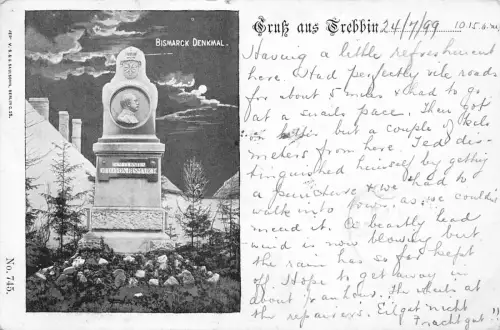 BISMARCK DENKMAL.
Gruß aus Trebbin 24/7/99 10.15 a.m.
Having a little refreshment
here. Had perfectly vile roads
for about 5 miles & had to go
at a snails pace. Then got
on but a couple of kilo
meters from here Ted dis-
tinguished himself by getting
a puncture & we had to
walk into town as we couldn't
mend it. A beastly head
wind is now blowing but
the rain has so far kept
off. Hope to get away in
about ½ an hour. The wheels at
the repairers. Eilgut nicht
Frachtgut!!
No. 745.